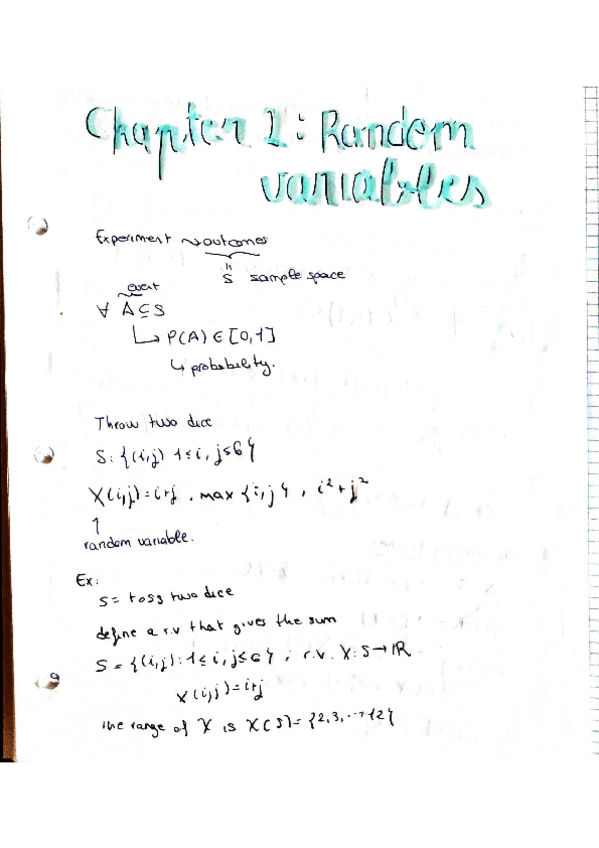 Chapter 2: Random
variables
Experiment ⤳ outcomes
=
S sample space
event
∀ A⊆S
↳ P(A) ∈ [0,1]
↳ probability.
Throw two dice
S: {(i,j) 1≤i, j≤6}
X(i,j) = i+j , max {i,j} , i²+j²
↑
random variable.
Ex:
S= toss two dice
define a r.v that gives the sum
S = {(i,j): 1≤i, j≤6} , r.v. X: S→ℝ
X(i,j) = i+j
the range of X is X(S)= {2,3,...,12}